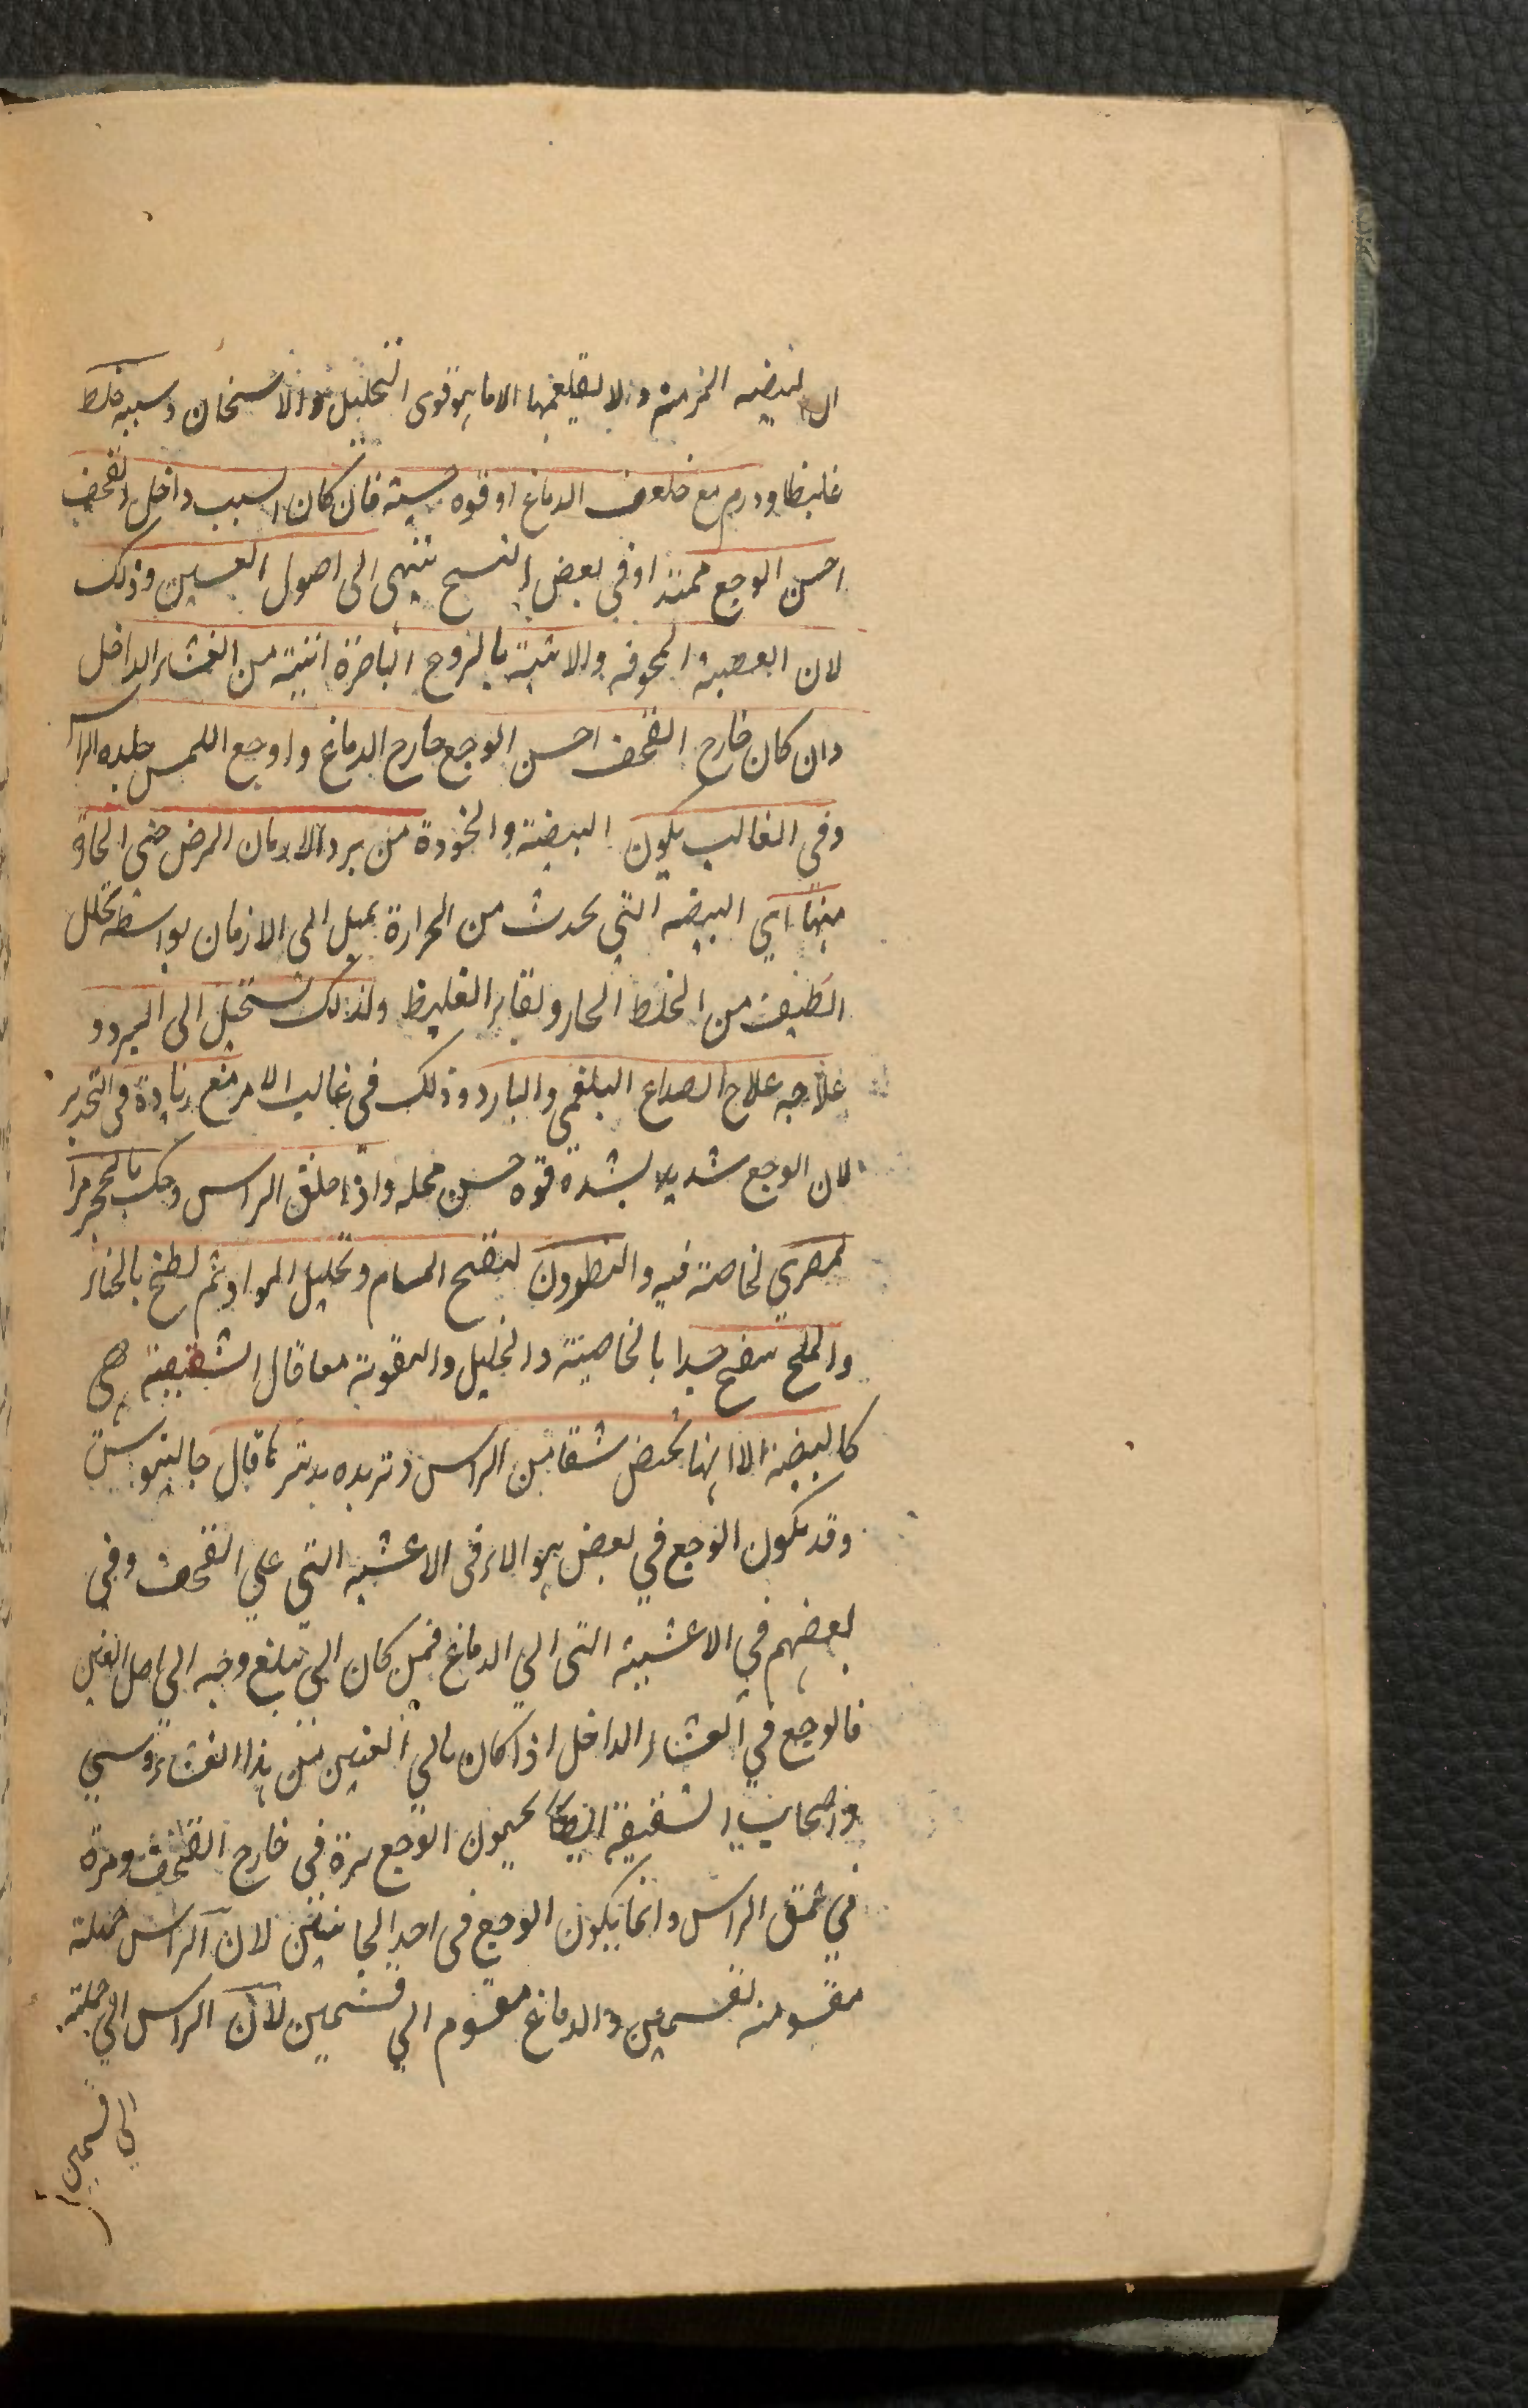 البيضه المزمنه ولا يقلعها الا ما هو قوى التحليل والاسخان وسببه خلط
غليظا وورم مع ضعف الدماغ او قوه حسيته فان كان السبب داخل القحف
احس الوجع ممتدا وفي بعض النسخ ينتهى الى اصول العينين وذلك
لان العصبة المجوفه والاتية بالروح الباصرة اتية من الغشاء الداخل
وان كان خارج القحف احس الوجع خارج الدماغ واوجع اللمس جلده الراس
وفى الغالب يكون البيضة والخودة من برد الازمان المرض حتى الحادة
منها اي البيضه التي يحدث من الحرارة يميل الى الازمان بواسطه تحلل
اللطيف من الخلط الحار ولقاء الغليظ ولذلك تستحيل الى البرد و
علاجه علاج الصداع البلغمي والبارد وذلك فى غالب الامر مع زيادة فى التخدير
لان الوجع شديد لشدة قوة حس محله واذا حلق الراس وحك بالحجر مرا
لمصري لخاصة فيه والنطرون لتفتح المسام وتحليل المواد ثم لطخ بالخناء
والملح نفع جدا بالخاصية والتحليل والتقوية معا قال الشقيقة هي
كالبيضة الا انها تخص شقا من الراس وتدبيره بدبير ها قال جالينوس
وقد يكون الوجع في بعض هوالاء فى الاغشيه التي على القحف وفي
بعضهم في الاغشية التى الي الدماغ فمن كان الي يبلغ وجعه الي اصل العين
فالوجع في الغشاء الداخل اذا كان ياتي العينين من هذا الغشاء وسي
واصحاب الشقيقة ايضا يحسون الوجع مرة فى خارج القحف ومرة
في عمق الراس وانما يكون الوجع فى احد الجانبين لان الراس جملة
مقسومة بقسمين والدماغ مقسوم الي قسمين لان الراس الي جملته
الي قسمين